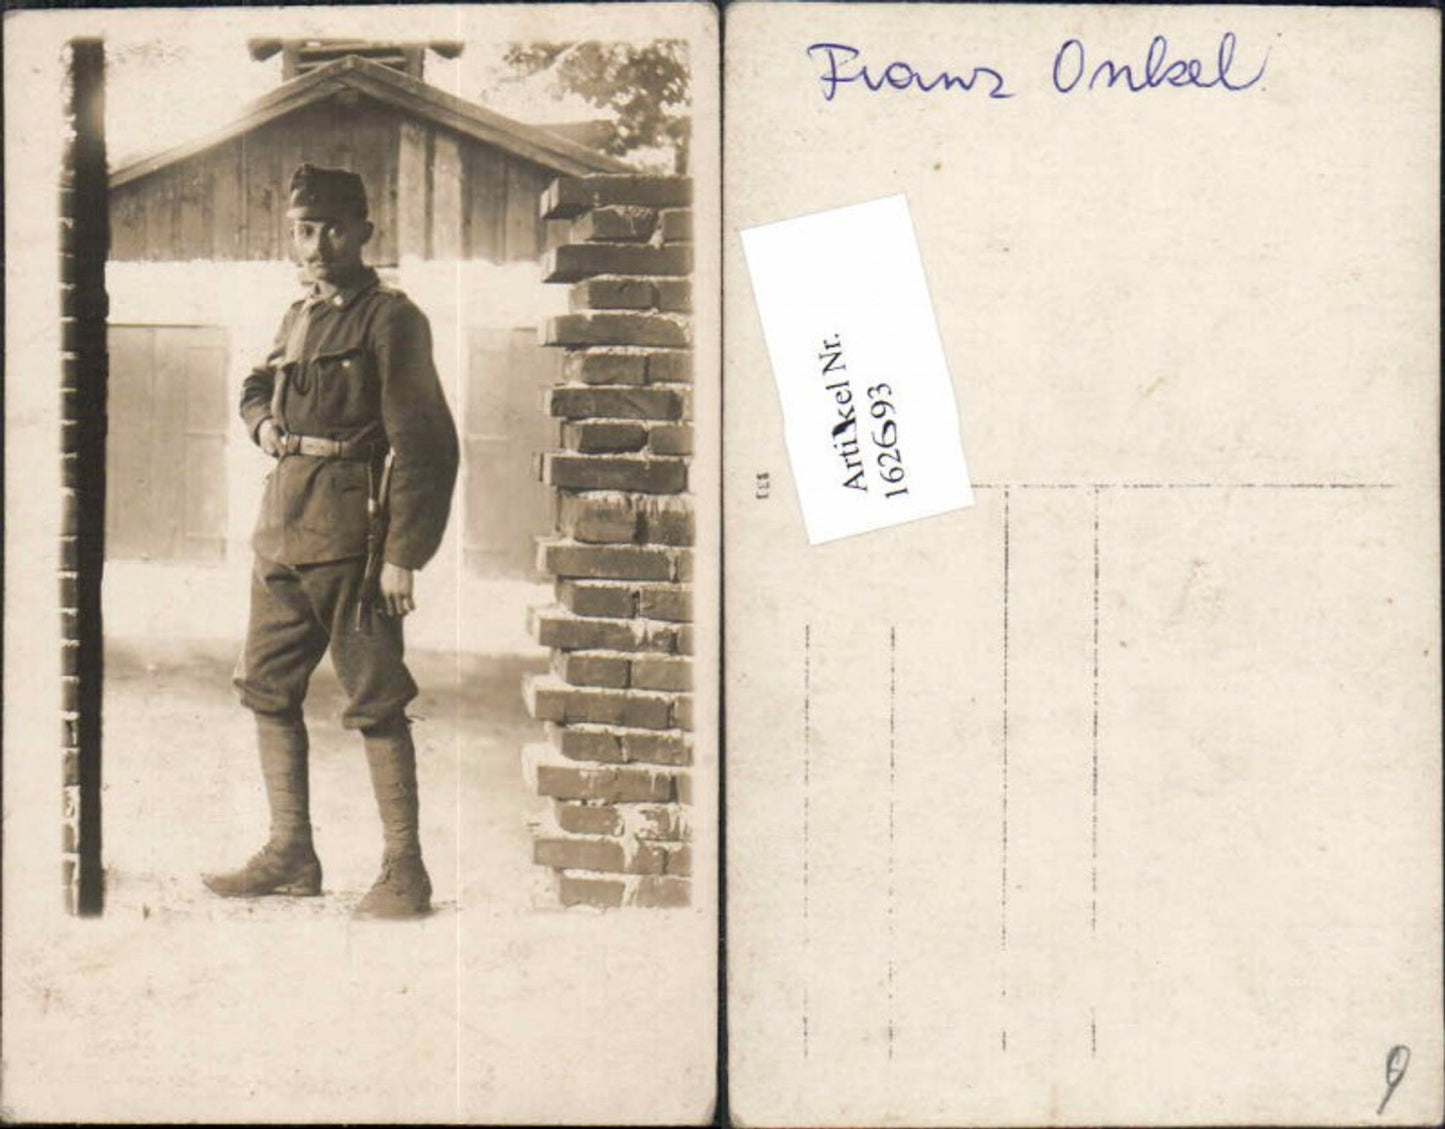 Franz Onkel
Artikel Nr.
162693